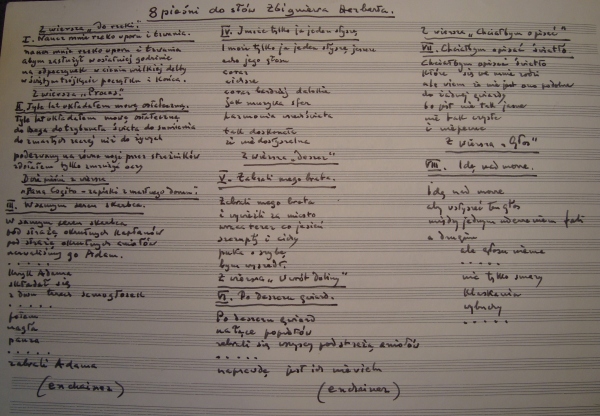 8 pieśni do słów Zbigniewa Herberta.
Z wiersza „Do rzeki”
I. Naucz mnie rzeko uporu i trwania.
naucz mnie rzeko uporu i trwania
abym zasłużył w ostatniej godzinie
na odpoczynek w cieniu wielkiej delty
w świętym trójkącie początku i końca.
Z wiersza „Proces”
II. Tyle lat układałem mowę ostateczną.
tyle lat układałem mowę ostateczną
do Boga do trybunału świata do sumienia
do zmarłych raczej niż do żywych
poderwany na równe nogi przez strażników
zdołałem tylko zmrużyć oczy
Dwie pieśni z wiersza
„Pana Cogito - zapiski z martwego domu”
III. W samym sercu skarbca.
W samym sercu skarbca
pod strażą okrutnych kapłanów
pod strażą okrutnych aniołów
nazwaliśmy go Adam.
. . . . .
Krzyk Adama
składał się
z dwu trzech samogłosek
. . . . .
potem
nagła
pauza
. . . . .
zabrali Adama
(enchainez)
IV. I może tylko ja jeden słyszę
I może tylko ja jeden słyszę jeszcze
echo jego głosu
coraz
cichsze
coraz bardziej dalekie
jak muzyka sfer
harmonia wszechświata
tak doskonała
że niedosłyszalna
Z wiersza „Deszcz”
V. Zabrali mego brata.
Zabrali mego brata
i wynieśli za miasto
wraca teraz co jesień
szczupły i cichy
puka o szybę
bym wyszedł.
Z wiersza „U wrót doliny”
VI. Po deszczu gwiazd.
Po deszczu gwiazd
na łące popiołów
zebrali się wszyscy pod strażą aniołów
. . . . .
naprawdę jest ich niewiele
(enchainez)
Z wiersza „Chciałbym opisać”
VII. Chciałbym opisać światło.
Chciałbym opisać światło
które się we mnie rodzi
ale wiem że nie jest ono podobne
do żadnej gwiazdy
bo jest nie tak jasne
nie tak czyste
i niepewne
Z wiersza „Głos”
VIII. Idę nad morze.
Idę nad morze
aby usłyszeć ten głos
między jednym uderzeniem fali
a drugim
ale głosu niema
. . . . .
nie tylko szmery
klaskania
wybuchy
. . . . .